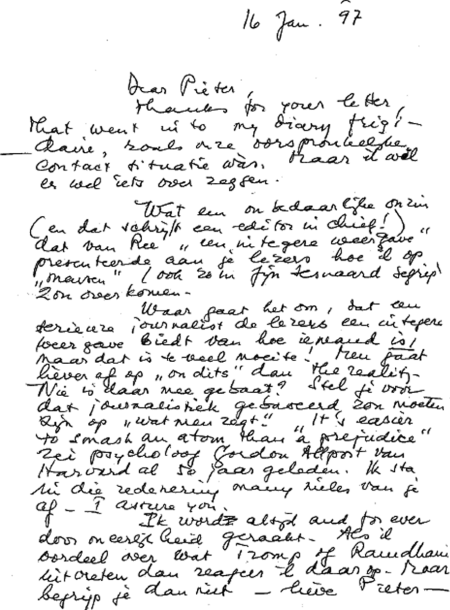 16 Jan. 97
Dear Pieter,
thanks for your letter,
that went in to my diary
zoals onze oorspronkelijke
contact situatie was. Maar ik wil
er wel iets over zeggen.
Wat een onbedaarlijke onzin
(en dat schrijft een editor in chief!)
dat van Ree "een integere weergave"
presenteerde aan je lezers hoe ik op
(ook zo'n fijn begrip)
zou over komen.
Waar gaat het om, dat een
serieuze journalist de lezers een integere
weergave biedt van hoe iemand is,
maar dat is te veel moeite! Men gaat
liever af op "on dits" dan the reality.
Wie is daar mee gebaat? Stel je voor
dat journalistiek gebaseerd zou moeten
zijn op "wat men zegt". "It's easier
to smash an atom than a prejudice"
zei psycholoog Gordon Allport van
Harvard al 50 jaar geleden. Ik sta
in die redenering many miles van je
af - I assure you.
Ik wordt altijd and for ever
door oneerlijkheid geraakt. Als ik
oordeel over wat Tromp of Ramdhani
uitvreten dan reageer ik daar op. Maar
begrijp je dan niet - lieve Pieter -